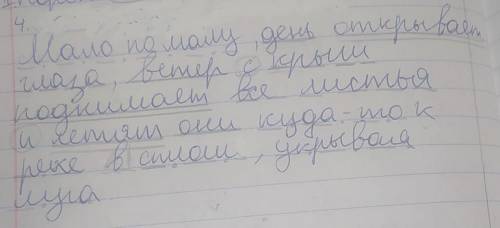 4.
Мало помалу, день открывает
глаза, ветер с крыш
поднимает все листья
и летят они куда-то к
реке в , укрывая
луга